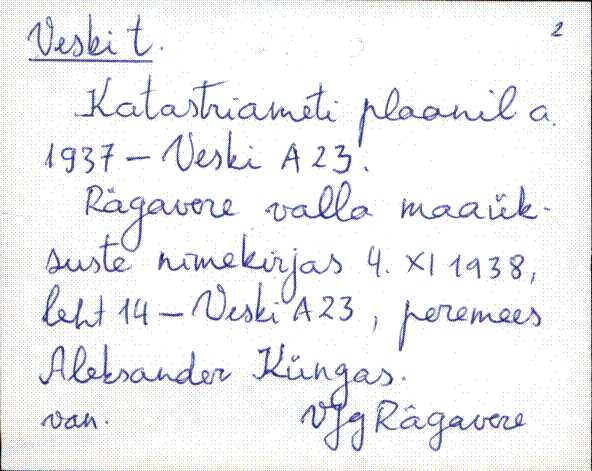 Veski t. 2
Katastriameti plaanil a.
1937 – Veski A 23.
Rägavere valla maaük-
suste nimekirjas 4. XI 1938,
leht 14 – Veski A 23, peremees
Aleksander Küngas.
van. VJg Rägavere